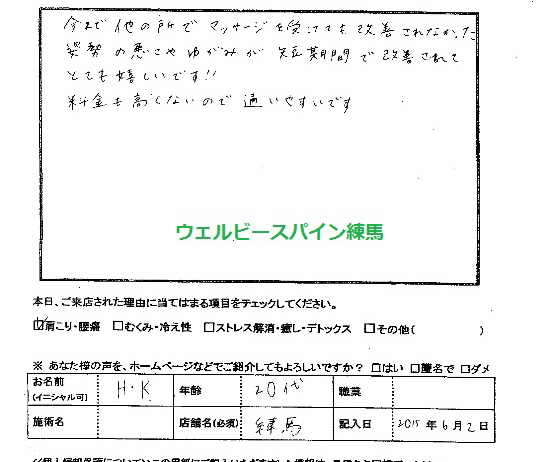 今まで他の所でマッサージを受けても改善されなかった
姿勢の悪さやゆがみが短期間で改善されて
とても嬉しいです!!
料金も高くないので通いやすいです
ウェルビースパイン練馬
本日、ご来店された理由に当てはまる項目をチェックしてください。
☑肩こり・腰痛 □むくみ・冷え性 □ストレス解消・癒し・デトックス □その他( )
※ あなた様の声を、ホームページなどでご紹介してもよろしいですか? □はい □匿名で □ダメ
お名前 (イニシャル可) H・K 年齢 20代 職業
施術名 店舗名(必須) 練馬 記入日 2015年6月2日